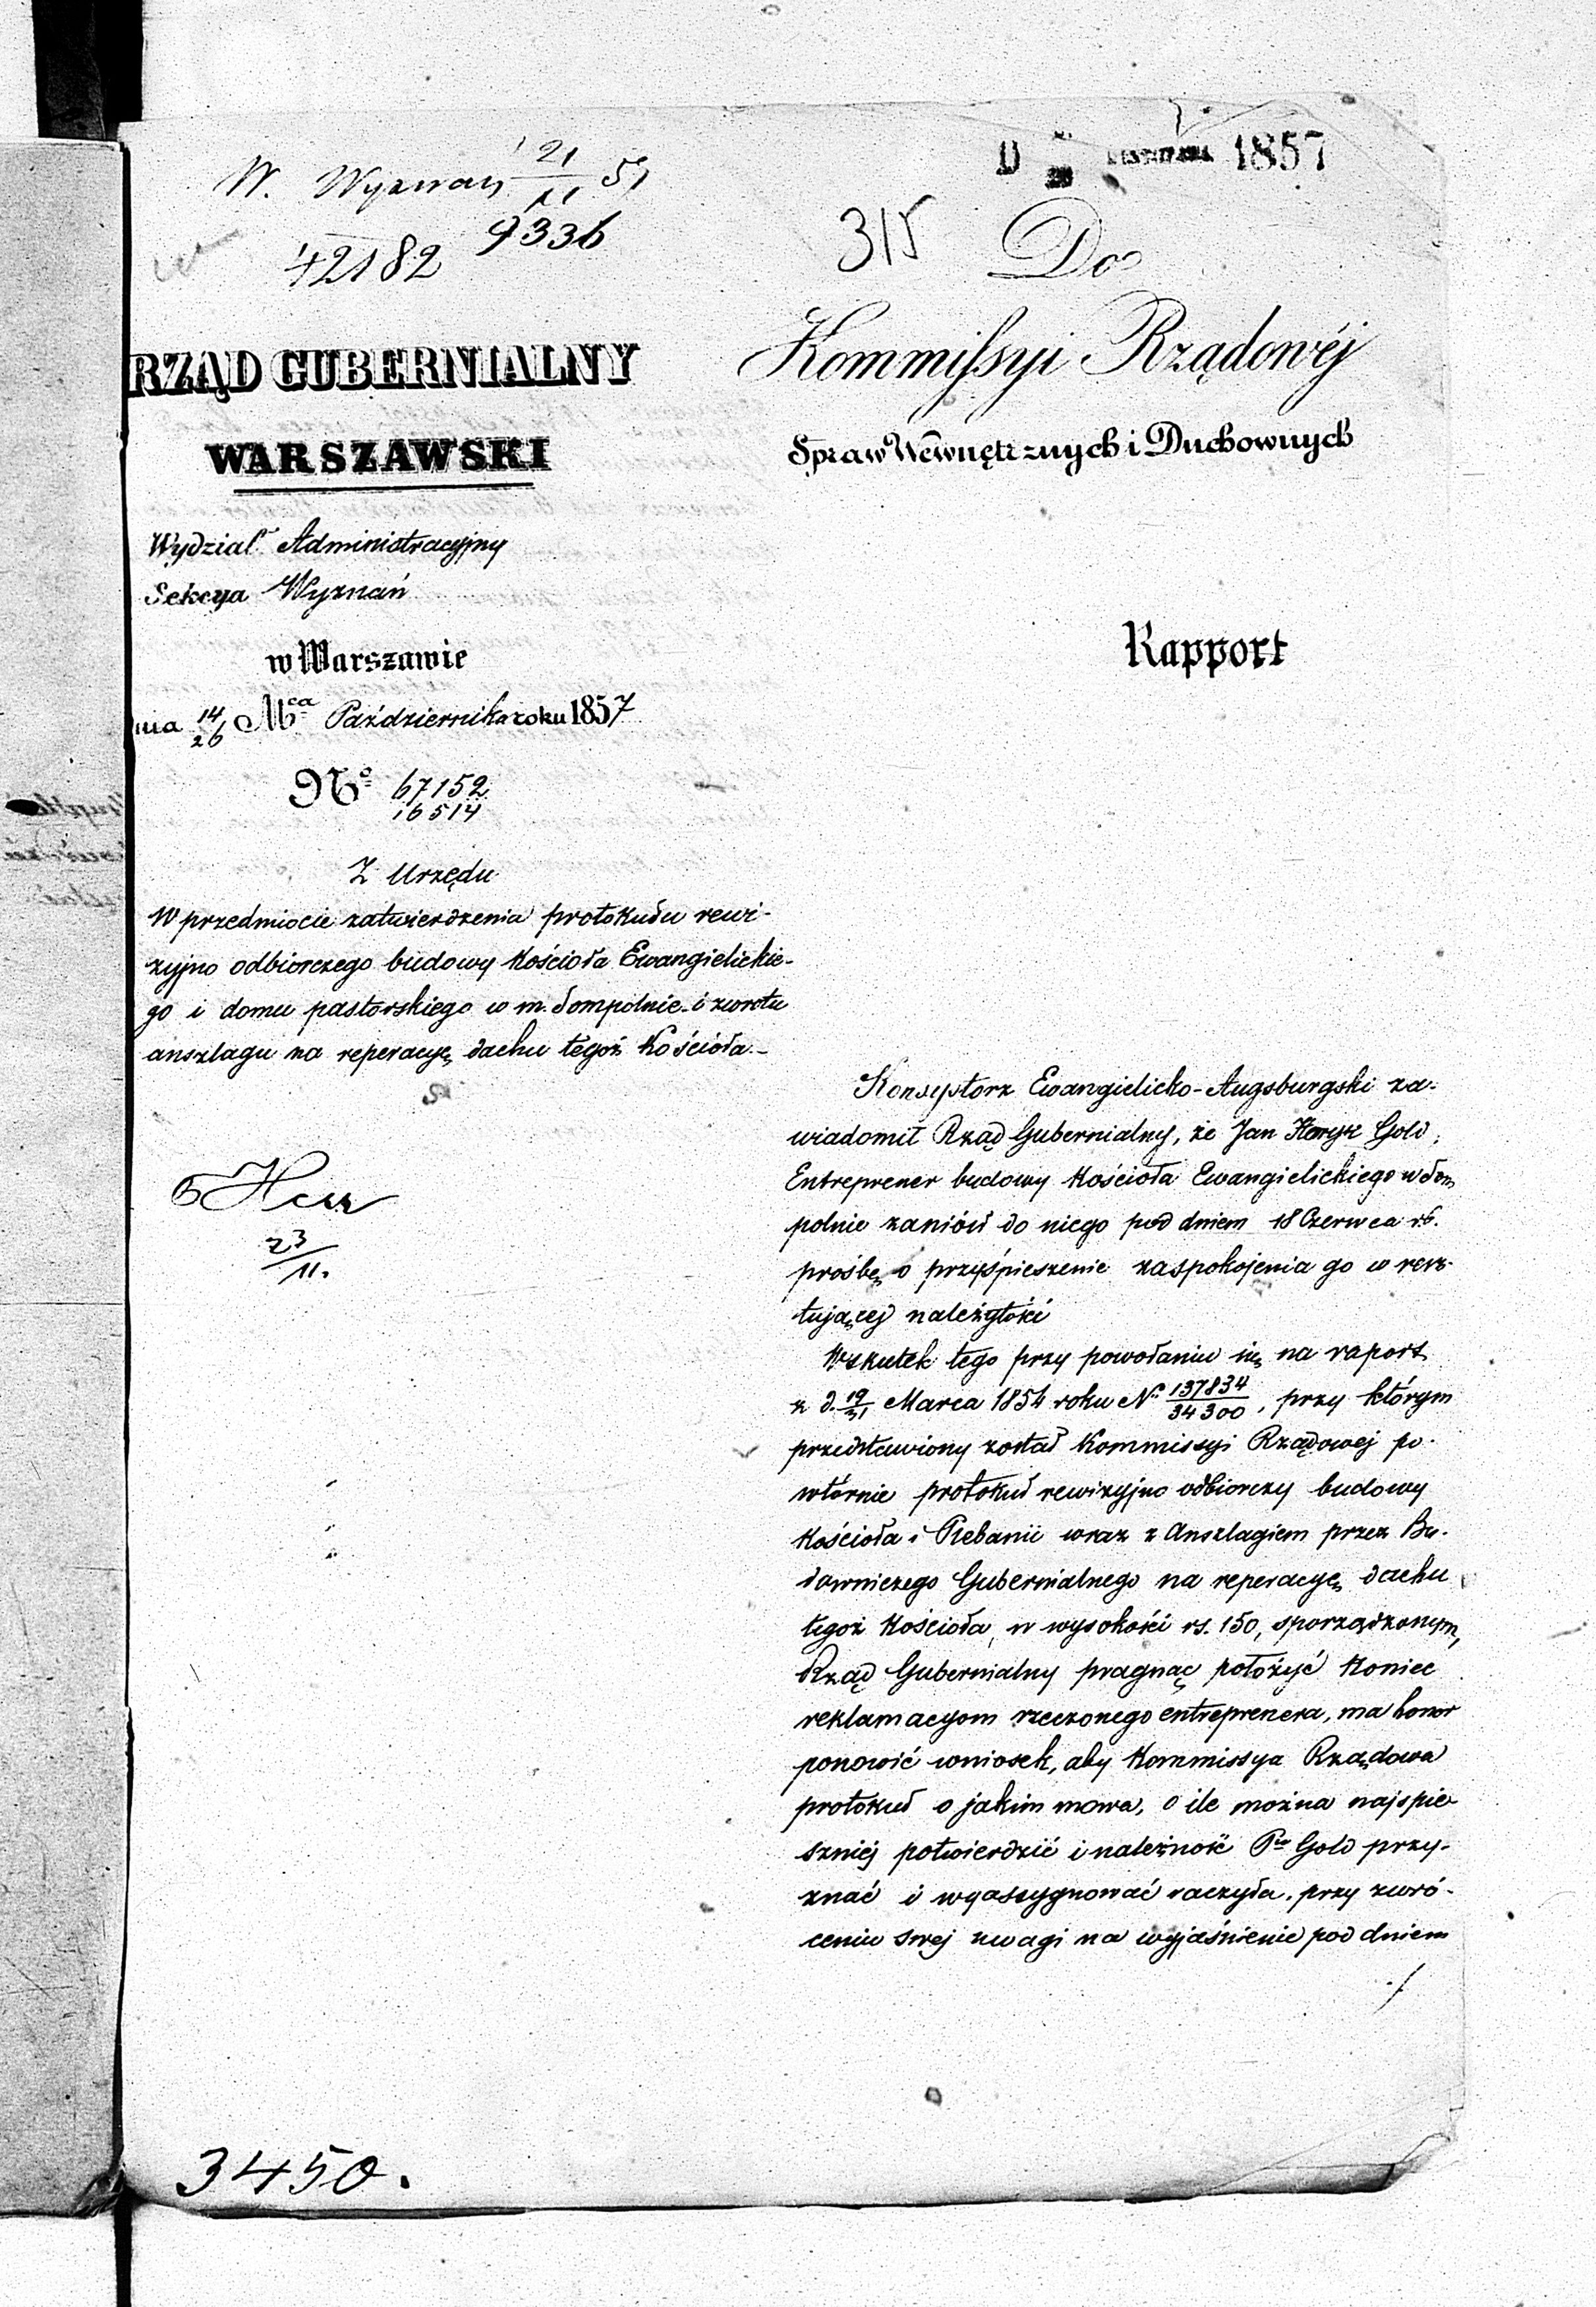 W. Wyznań 21/11 57
9336
42182
RZĄD GUBERNIALNY
WARSZAWSKI
Wydział Administracyjny
Sekcya Wyznań
w Warszawie
nia 14/26 Mca Października roku 1857
No 67152
16514
Z Urzędu
W przedmiocie zatwierdzenia protokułu rewi-
zyjno odbiorczego budowy Kościoła Ewangielickie-
go i domu pastorskiego w m. Sompolnie i zwrotu
anszlagu na reperacyę dachu tegoż Kościoła.-
23/11.
3450.
D 1857
315
Do
Kommissyi Rządowéj
Spraw Wewnętrznych i Duchownych
Rapport
Konsystorz Ewangielicko-Augsburgski za-
wiadomił Rząd Gubernialny, że Jan Henryk Gold,
Entreprener budowy Kościoła Ewangielickiego w Som
polnie zaniósł do niego pod dniem 18 Czerwca r.b.
prośbę o przyśpieszenie zaspokojenia go w resz-
tującej należytości
Wskutek tego przy powołaniu się na raport
z d. 19/31 Marca 1854 roku No 137834/34300, przy którym
przedstawiony został Kommissyi Rządowej po-
wtórnie protokuł rewizyjno odbiorczy budowy
Kościoła i Plebanii wraz z Anszlagiem przez Bu-
downiczego Gubernialnego na reperacyę dachu
tegoż Kościoła, w wysokości rs. 150, sporządzonym,
Rząd Gubernialny pragnąc położyć koniec
reklamacyom rzeczonego entreprenera, ma honor
ponowić wniosek, aby Kommissya Rządowa
protokuł o jakim mowa, o ile można najspie-
szniej potwierdzić i należność Pu Gold przy-
znać i wyassygnować raczyła, przy zwró-
ceniu swej uwagi na wyjaśnienie pod dniem
./